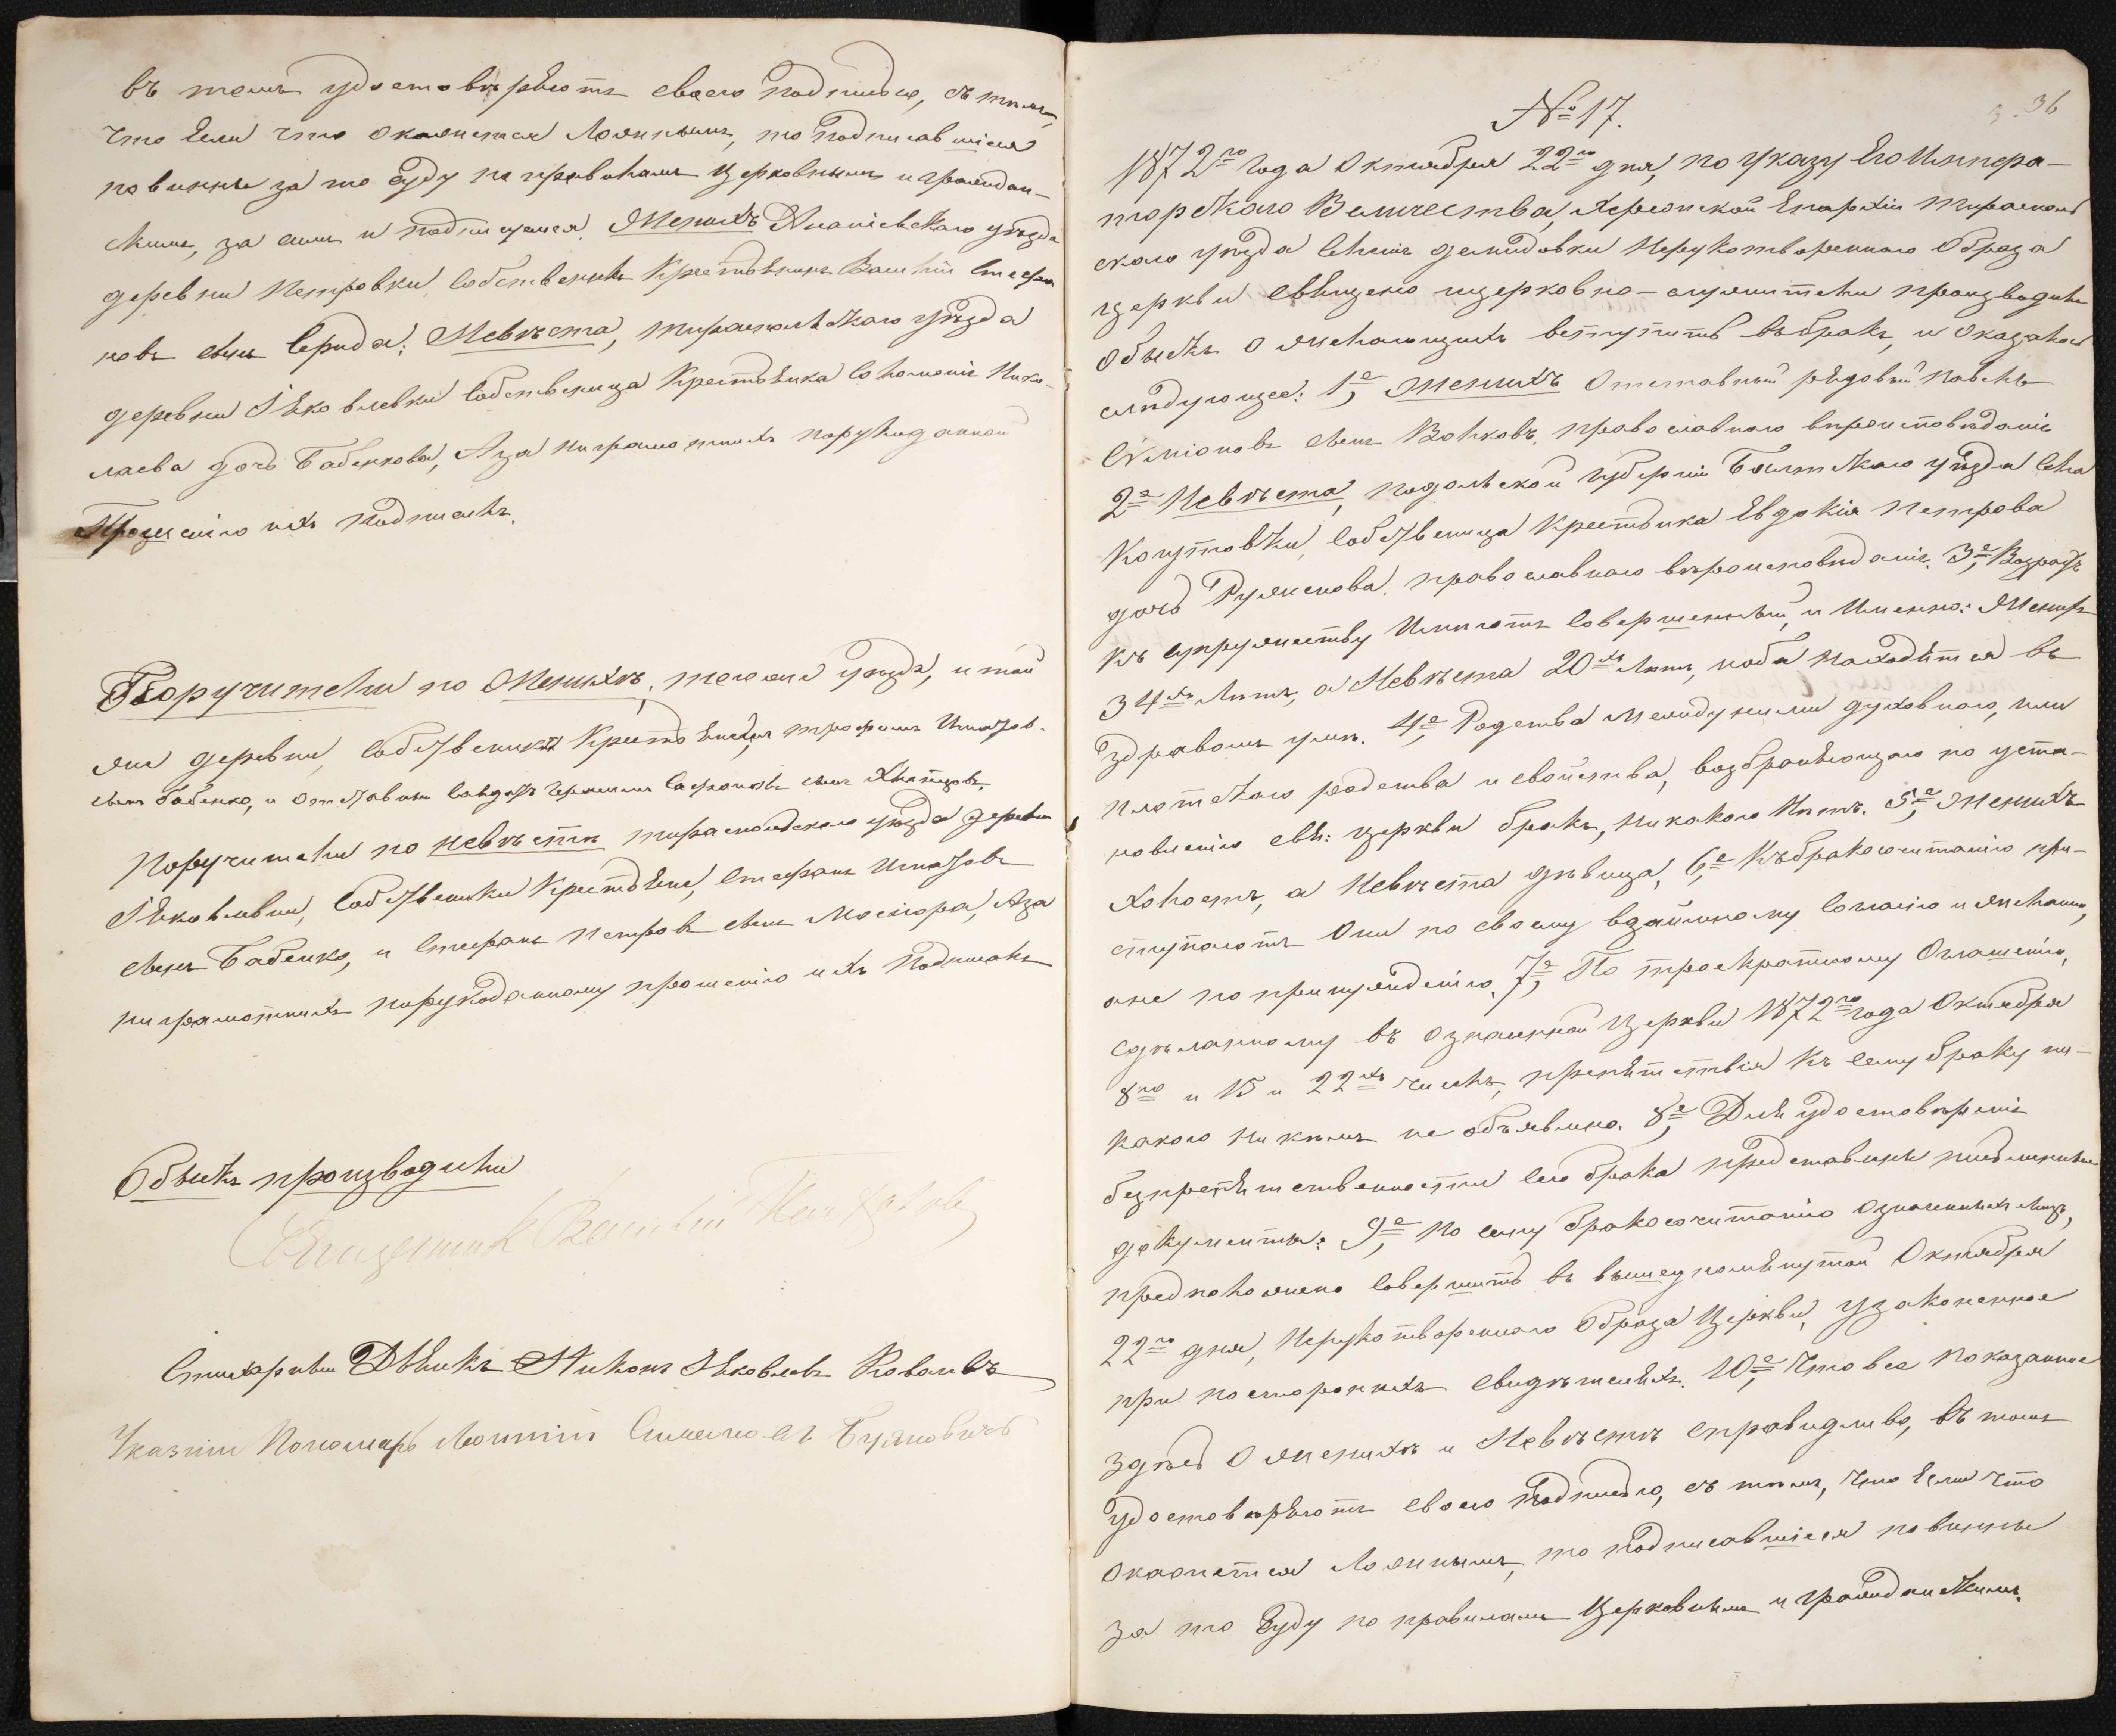 въ томъ удостовѣряютъ своею подписью, съ тѣмъ,
что если что окажется ложнымъ, то подписавшіеся
повинны за то суду по правиламъ церковнымъ и граждан-
скимъ, за симъ и подпишемся. Женихъ Ананіевскаго уѣзда
деревни Петровки собственникъ Крестьянинъ Василій Стефа
новъ сынъ Середа; Невѣста, тираспольскаго уѣзда
деревни Яковлевки собственница Крестьянка Соломонія Нико-
лаева дочь Бабенкова, А за неграмотныхъ порукиданной
Прошенію ихъ подписалъ.
Поручители по Женихѣ, того же уѣзда, и той
же деревни, собственникъ Крестьянинъ трофимъ Игнатов.
сынъ Бабенко, и отставный солдатъ Софроновъ сынъ
Поручители по невѣстѣ тираспольскаго уѣзда деревни
Яковлевки, собственники Крестьяне, Стефанъ Игнатовъ
сынъ Бабенко, и Стефанъ Петровъ сынъ А за
неграмотныхъ порукоданному прошенію ихъ подписалъ
Обыскъ производили
Священникъ Василій
Стихарный Дьякъ Никонъ Яковлевъ Ковалевъ
Указный Пономарь Леонтій
№ 17.
36
1872го года Октября 22го дня, по указу Его Импера-
торскаго Величества, Херсонской Епархіи тирасполь
скаго уѣзда Селенія демидовки Нерукотвореннаго Образа
церкви священо и церковно-служители производили
обыскъ о желающихъ вступить въ бракъ, и оказалось
слѣдующее: 1е, Женихъ Отставный рядовый Павелъ
Сѵміоновъ сынъ Волковъ, православнаго вѣроисповѣданія
2е Невѣста, подольской губерніи Балтскаго уѣзда Села
собственница Крестьянка Евдокія Петрова
дочь православнаго вѣроисповѣданія. 3е, Возрастъ
къ супружеству Имѣютъ совершенный, и Именно: Женихъ
34хъ Лѣтъ, а Невѣста 20хъ Лѣтъ, и оба находятся въ
здравомъ умѣ. 4е, Родства между ними духовнаго, или
плотскаго родства и свойства, возбраняющаго по уста-
новленію свя: церкви бракъ, никакого Нѣтъ. 5е, Женихъ
Холостъ, а Невѣста дѣвица, 6е, Къ бракосочитанію при-
ступаютъ Они по своему взаимному Согласію и желанію,
а не по принужденію. 7е, По троекратному Оглашенію,
сдѣланному въ означенной церкви 1872го года Октября
8го и 15 и 22хъ числъ, препятствія Къ сему браку ни-
какого никѣмъ не объявлено. 8е, Для удостовѣренія
безпрепятственности сего брака представлены письменные
документы: 9е, по сему бракосочитаніе означенныхъ лицъ,
предположено совершить въ вышеупомянутой Октября
22го дня, Нерукотвореннаго Образа Церкви, узаконенное
при постороннихъ свидѣтеляхъ. 10е, Что все показанное
здѣсь о женихѣ и Невѣстѣ справидливо, въ томъ
удостовѣряютъ своею подписью, съ тѣмъ, что Если что
окажется Ложнымъ, то подписавшіеся повинны
за то суду по правиламъ Церковнымъ и гражданскимъ.